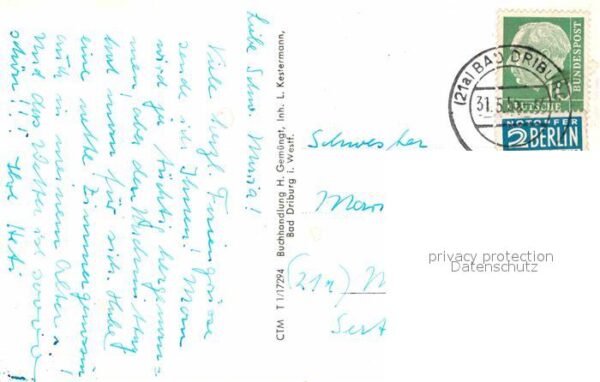 Liebe Schw. Maria!
Viele herzl. Feriengrüsse
sende ich Ihnen! Man
wird ja tüchtig hergenom-
men, aber den Nachmittag
hat man für sich. Habe
eine nette Zimmergenossin
auch in meinem Alter.
Und das Wetter ist soooo
schön!!! Ihre Hedi
CTM T 1/17294 Buchhandlung H. Gemüngt, Inh. L. Kestermann,
Bad Driburg i. Westf.
(21a) BAD DRIBU
31.5.
DEUTSCHE
BUNDESPOST
NOTOPFER
2 BERLIN
Schwester
(21a) M
privacy protection
Datenschutz